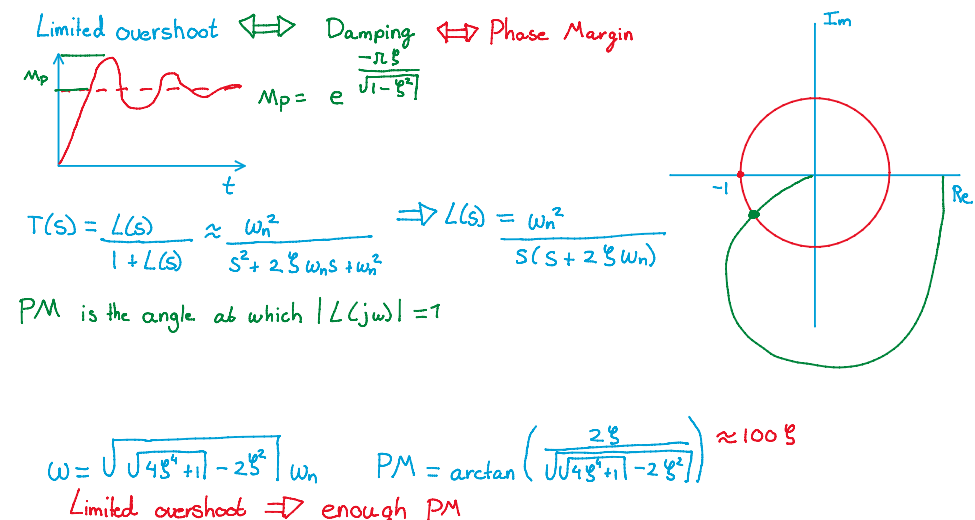 Limited overshoot ⟺ Damping ⟺ Phase Margin
Mp
Mp = e^(-πξ/√(1-ξ²))
t
T(s) = L(s)/(1 + L(s)) ≈ ωn²/(s² + 2ξωns + ωn²) ⟹ L(s) = ωn²/(s(s + 2ξωn))
PM is the angle at which |L(jω)| = 1
Im
-1
Re
ω = √(√(4ξ⁴+1) - 2ξ²) ωn PM = arctan(2ξ/√(√(4ξ⁴+1) - 2ξ²)) ≈ 100 ξ
Limited overshoot ⟹ enough PM